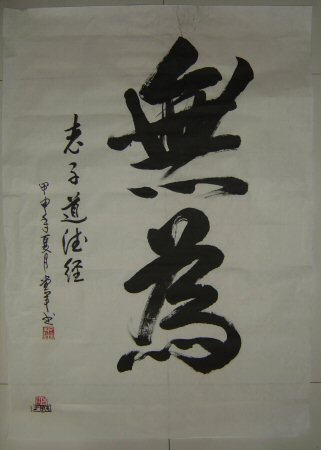 無為
老子道德経
甲申年夏月